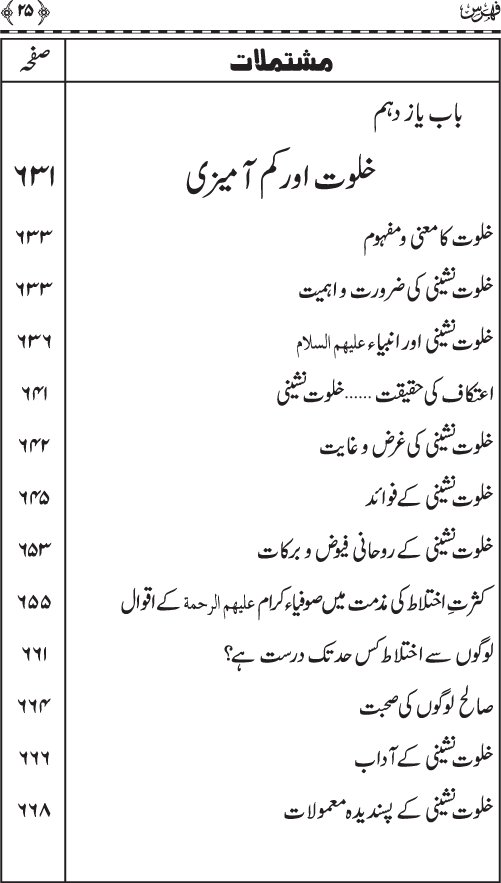 فہرس ﴿۲۵﴾
مشتملات صفحہ
باب یاز دہم
خلوت اور کم آمیزی ۶۳۱
خلوت کا معنی و مفہوم ۶۳۳
خلوت نشینی کی ضرورت و اہمیت ۶۳۳
خلوت نشینی اور انبیاء علیہم السلام ۶۳۶
اعتکاف کی حقیقت ...... خلوت نشینی ۶۴۱
خلوت نشینی کی غرض و غایت ۶۴۲
خلوت نشینی کے فوائد ۶۴۵
خلوت نشینی کے روحانی فیوض و برکات ۶۵۳
کثرتِ اختلاط کی مذمت میں صوفیاء کرام علیہم الرحمة کے اقوال ۶۵۵
لوگوں سے اختلاط کس حد تک درست ہے؟ ۶۶۱
صالح لوگوں کی صحبت ۶۶۴
خلوت نشینی کے آداب ۶۶۶
خلوت نشینی کے پسندیدہ معمولات ۶۶۸